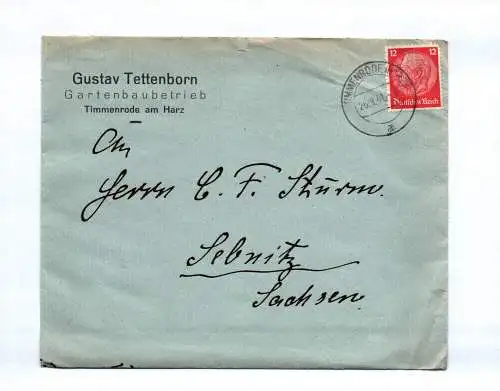 Gustav Tettenborn
Gartenbaubetrieb
Timmenrode am Harz
12 12
Deutsches Reich
TIMMENRODE
a
An
Herrn C. F. Sturm.
Sebnitz
Sachsen.